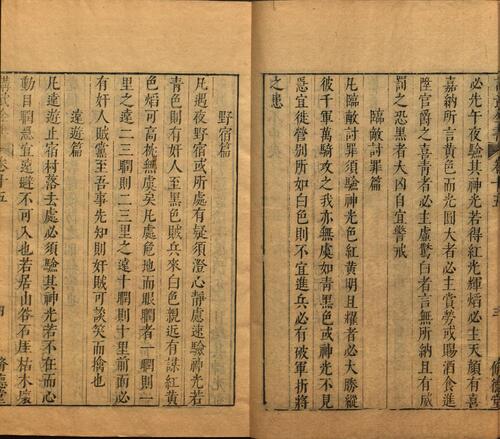 必光午夜驗其神光若得紅光輝熖必主天顏有喜
嘉納所言黃色而光圓大者必主賞勞或賜酒食進
陞官爵之喜青者必主虛驚白者言無所納且有威
罰之恐黑者大凶自宜警戒
臨敵討罪篇
凡臨敵討罪須驗神光色紅黃明且耀者必大勝縱
彼千軍萬騎攻之我亦無虞如青黑色或神光不見
恐宜徙營別所如白色則不宜進兵必有破軍折將
之患
三
脩德堂
野宿篇
凡遇夜野宿或所處有疑須澄心靜慮速驗神光若
青色則有奸人至黑色賊兵來白色親近有謀紅黃
色熖可高枕無虞矣凡處危地而眼瞤者一瞤則一
里之遠二三瞤則二三里之遠十瞤則十里前面必
有奸人賊黨至吾事先知則奸賊可談笑而擒也
遠遊篇
凡遠遊止宿村落去處必須驗其神光若不在而心
動目瞤急宜遠遊不可入也若居山谷石崖枯木壞
卷十五
四
脩德堂